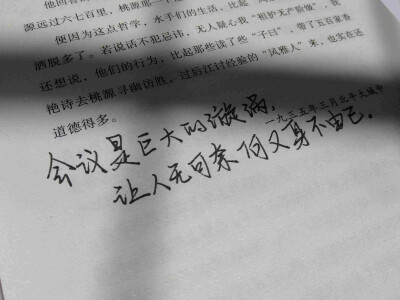 源远过六七百里，桃源那一
便因为这点哲学，水手们的生活，比起
洒脱多了。若说话不犯忌讳，无人疑心我“袒护无产阶级”，我
还想说，他们的行为，比起那些读了些“子曰”，带了五百家香
艳诗去桃源寻幽访胜，过后江讨经验的“风雅人”来，也实在还
道德得多。
一九三五年三月北平大城中
会议是巨大的漩涡，
让人无可奈何又身不由己。